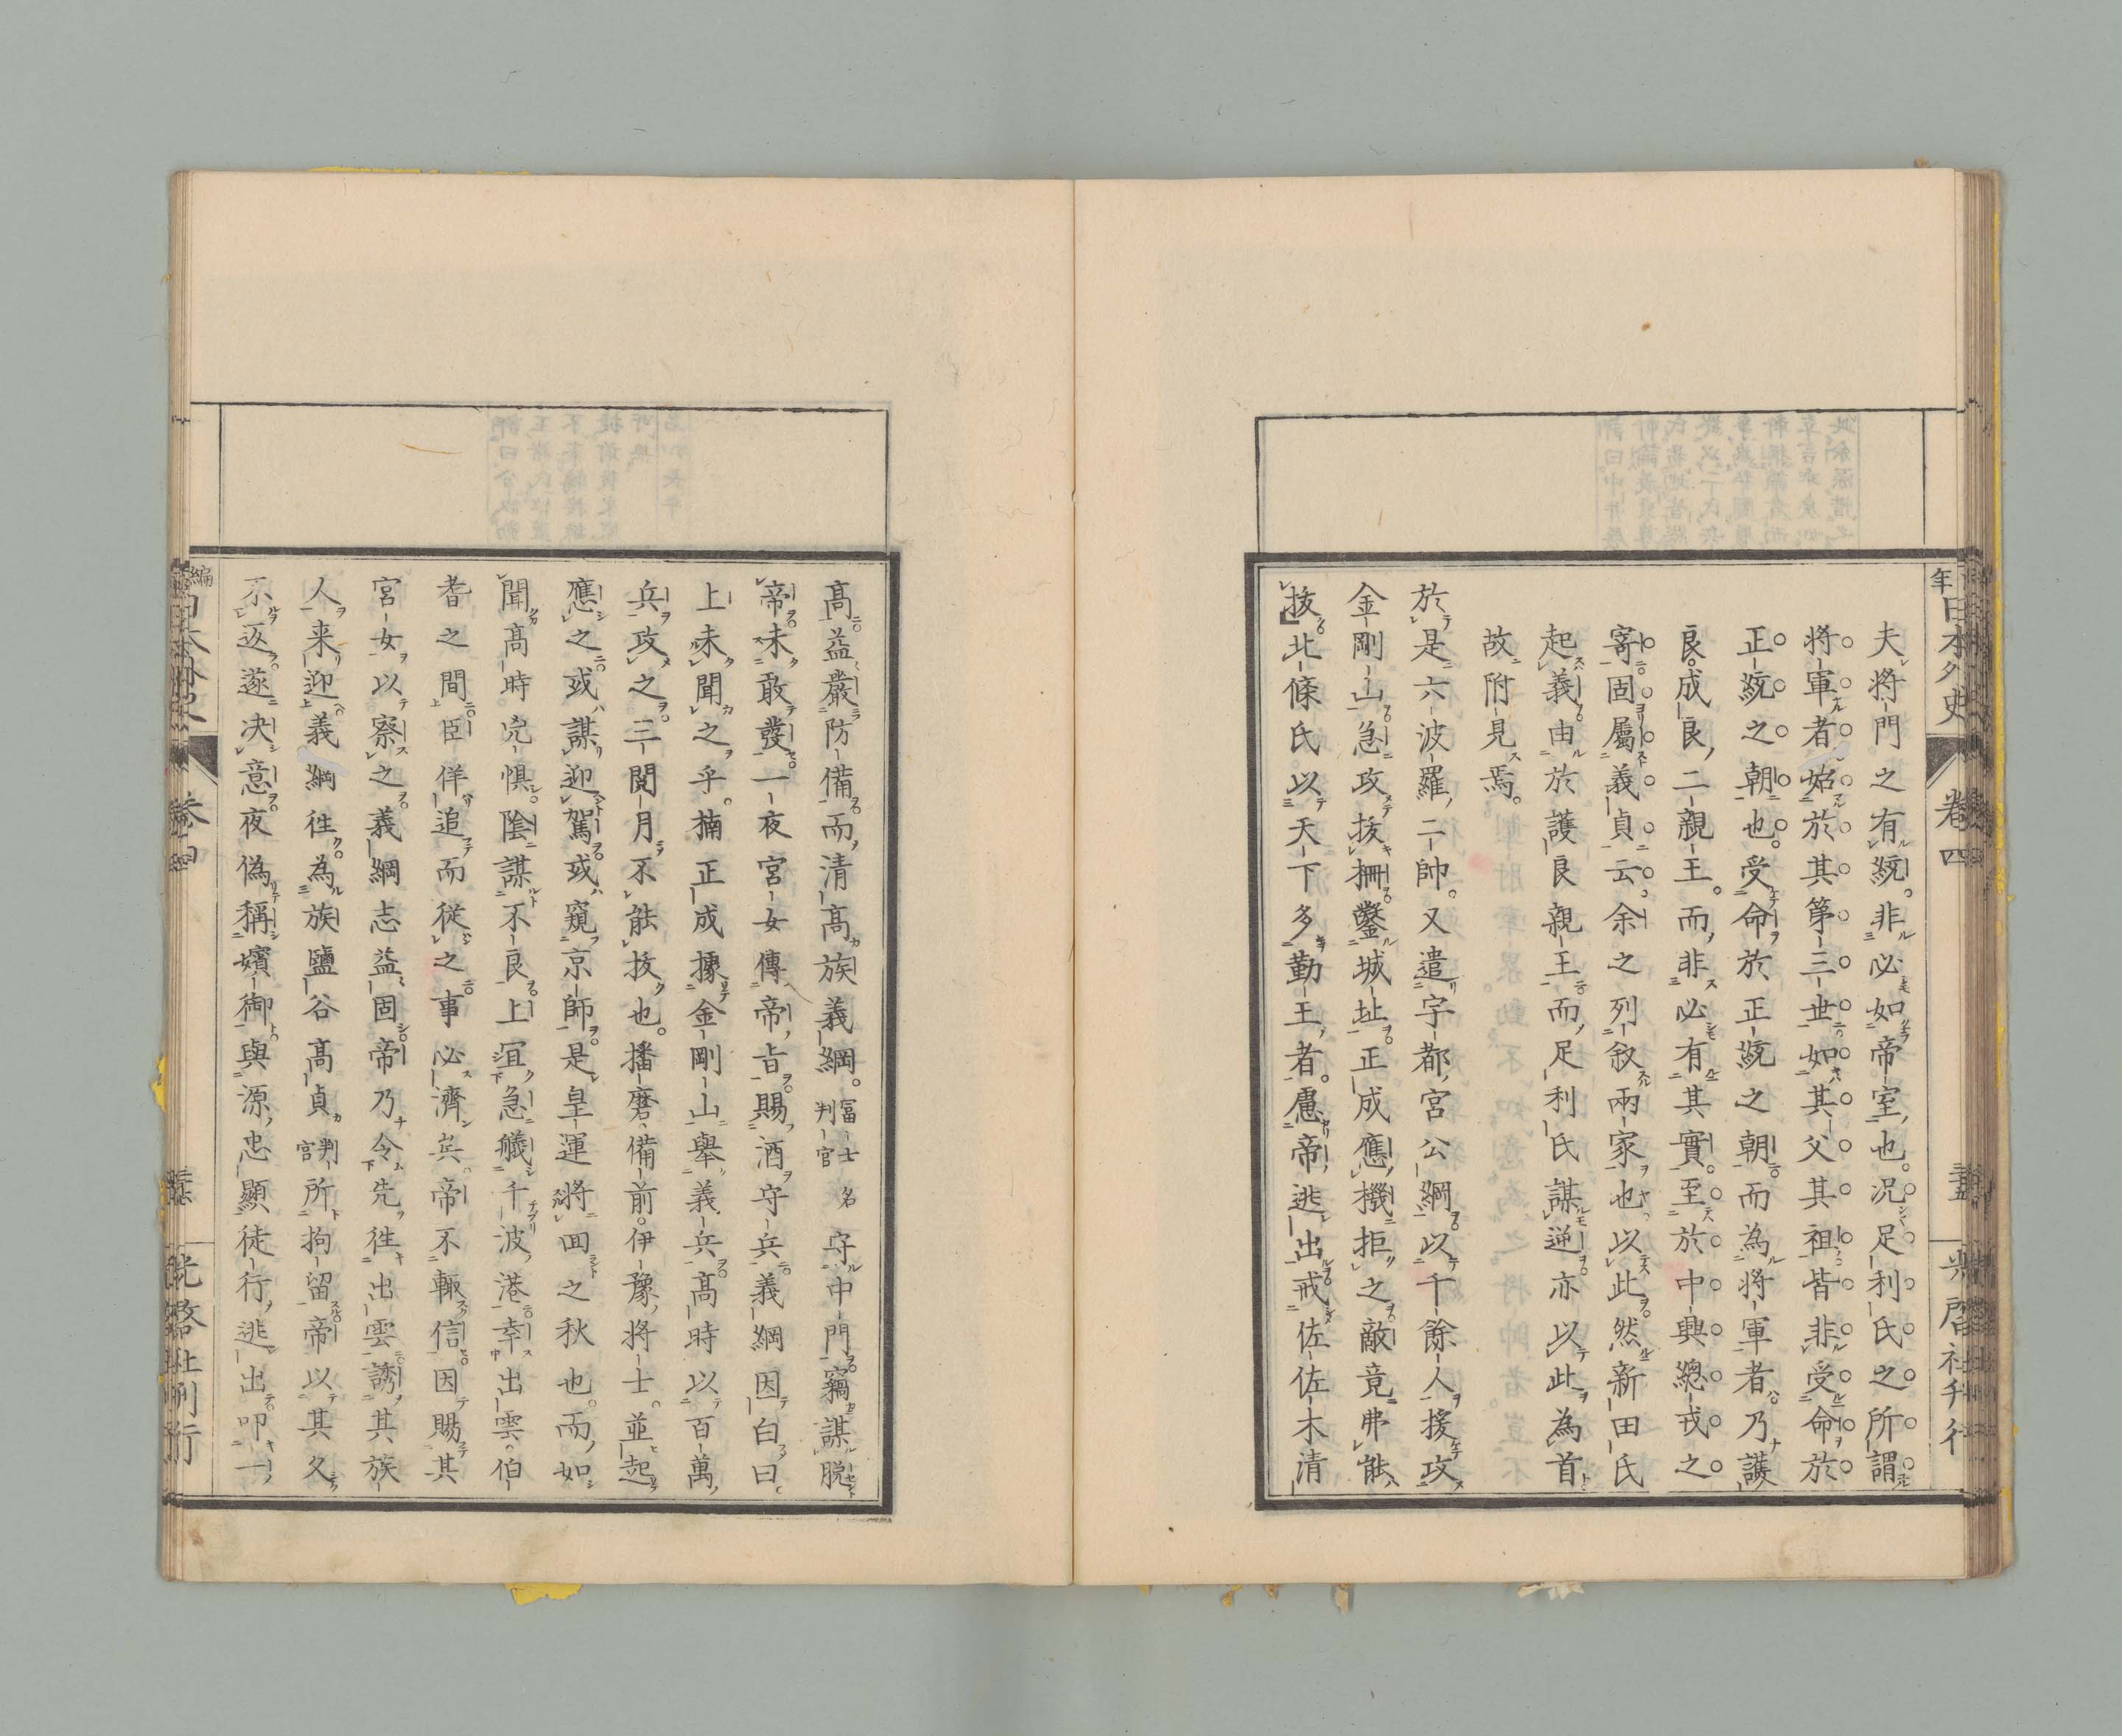 夫將門之有統。非必如帝室也。況足利氏之所謂
將軍者。始於其第三世。如其父其祖。皆非受命於
正統之朝也。受命於正統之朝。而為將軍者。乃護
良。成良二親王。而非必有其實。至於中興總戎之
寄。固屬義貞云。余之列敘兩家也以此。然新田氏
起義。由於護良親王。而足利氏謀逆。亦以此為首
故附見焉。
於是六波羅二帥。又遣宇都宮公綱。以千餘人援攻
金剛山。急攻拔柵。鑿城址。正成應機拒之。敵竟弗能
拔。北條氏以天下多勤王者。慮帝逃出。戒佐佐木清
高。益嚴防備。而清高族義綱。富士名判官守中門。竊謀脫
帝。未敢發。一夜宮女傳帝旨。賜酒守兵。義綱因白曰
上未聞之乎。楠正成據金剛山舉義兵。高時以百萬
兵攻之。三閱月不能拔也。播磨備前。伊豫將士。並起
應之。或謀迎駕。或窺京師。是皇運將回之秋也。而如
聞高時兇懼。陰謀不良。上宜急艤千波港。幸出雲。伯
耆之間。臣佯追而從之。事必濟矣。帝不輒信。因賜其
宮女。以察之。義綱志益固。帝乃令先往出雲。誘其族
人來迎。義綱往。為族鹽谷高貞判官所拘留。帝以其久
不返。遂決意。夜偽稱嬪御。與源忠顯徒行逃出。叩一
日本外史
卷四